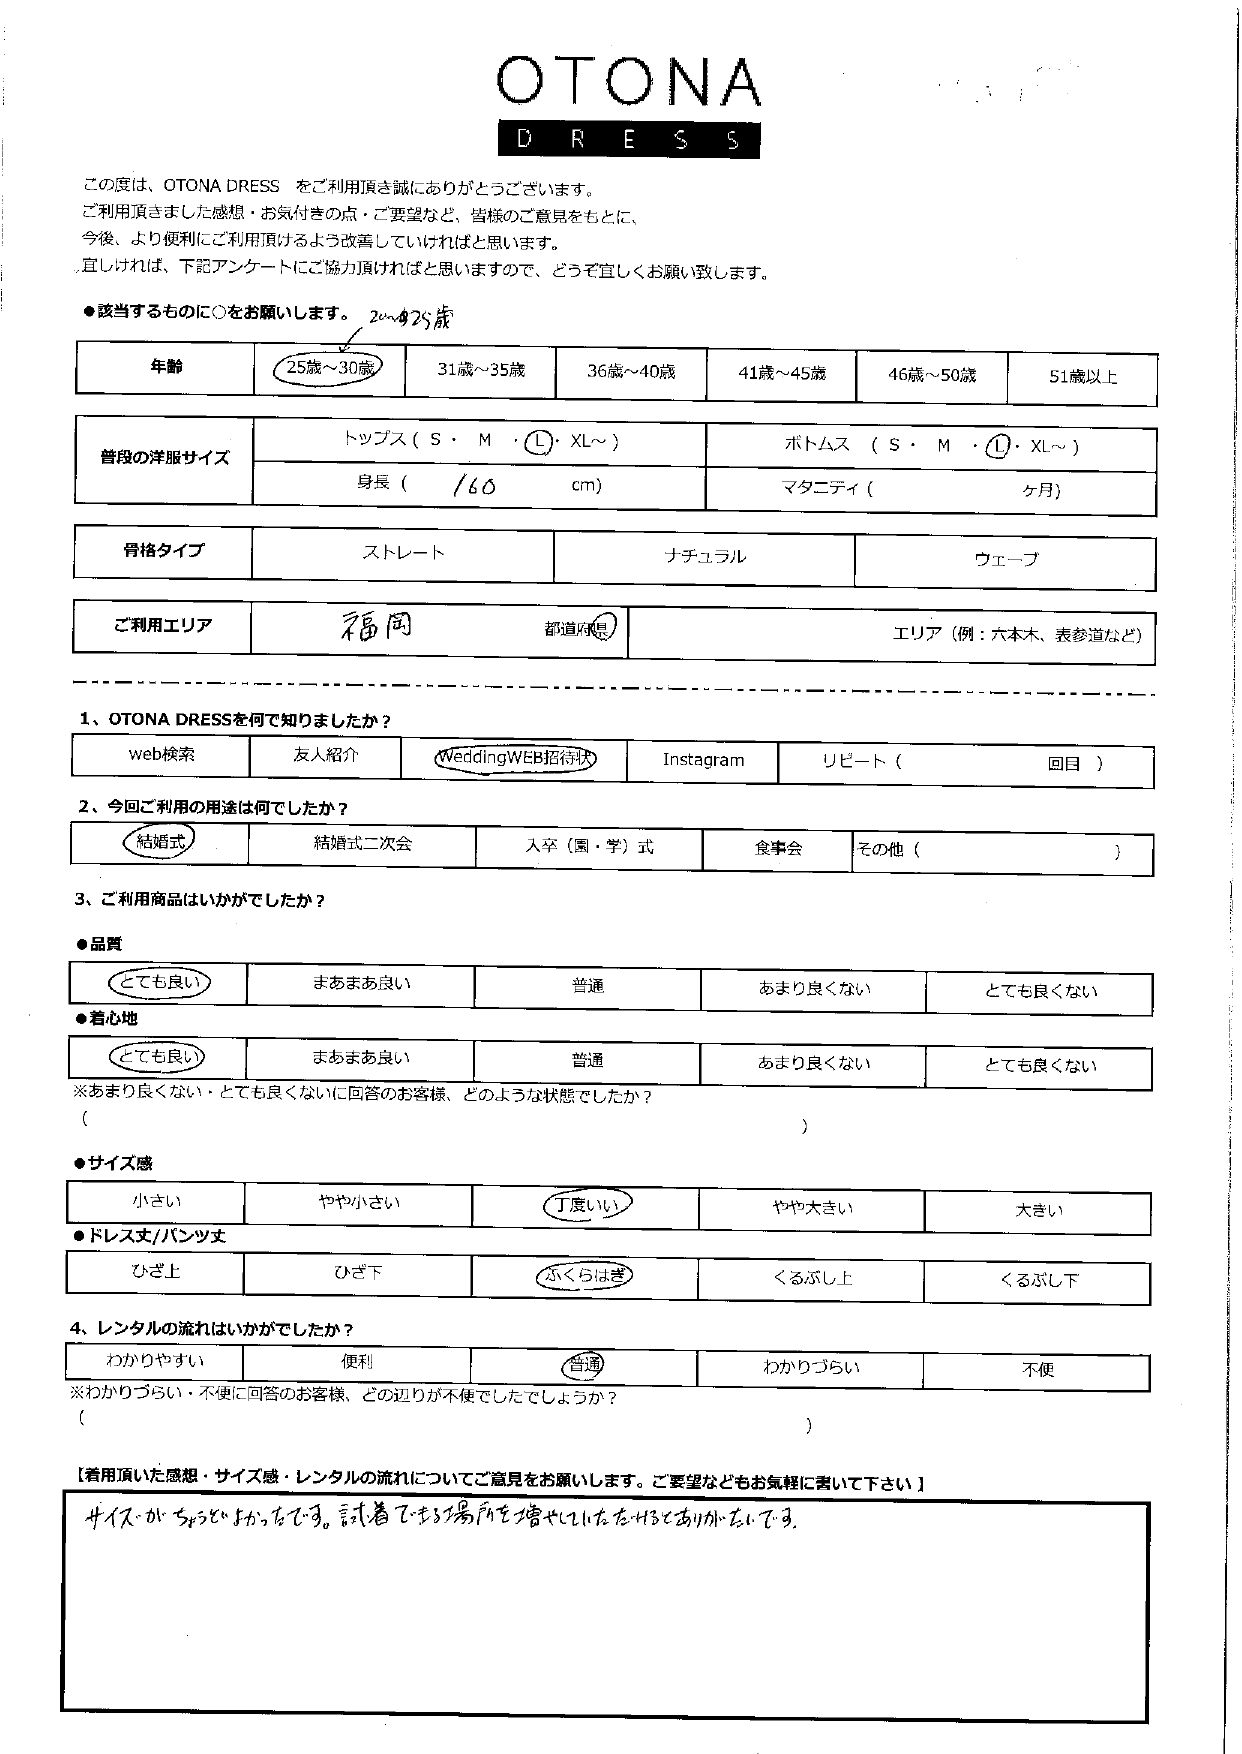 OTONA
DRESS
この度は、OTONA DRESS をご利用頂き誠にありがとうございます。
ご利用頂きました感想・お気付きの点・ご要望など、皆様のご意見をもとに、
今後、より便利にご利用頂けるよう改善していければと思います。
宜しければ、下記アンケートにご協力頂ければと思いますので、どうぞ宜しくお願い致します。
●該当するものに○をお願いします。 20〜25歳
年齢 25歳～30歳 31歳～35歳 36歳～40歳 41歳～45歳 46歳～50歳 51歳以上
普段の洋服サイズ トップス ( S ・ M ・ L ・ XL～ ) ボトムス ( S ・ M ・ L ・ XL～ )
身長 ( 160 cm) マタニティ ( ケ月)
骨格タイプ ストレート ナチュラル ウェーブ
ご利用エリア 福岡 都道府県 エリア（例：六本木、表参道など）
1、OTONA DRESSを何で知りましたか？
web検索 友人紹介 WeddingWEB招待状 Instagram リピート ( 回目 )
2、今回ご利用の用途は何でしたか？
結婚式 結婚式二次会 入卒（園・学）式 食事会 その他 ( )
3、ご利用商品はいかがでしたか？
●品質
とても良い まあまあ良い 普通 あまり良くない とても良くない
●着心地
とても良い まあまあ良い 普通 あまり良くない とても良くない
※あまり良くない・とても良くないに回答のお客様、どのような状態でしたか？
( )
●サイズ感
小さい やや小さい 丁度いい やや大きい 大きい
●ドレス丈/パンツ丈
ひざ上 ひざ下 ふくらはぎ くるぶし上 くるぶし下
4、レンタルの流れはいかがでしたか？
わかりやすい 便利 普通 わかりづらい 不便
※わかりづらい・不便に回答のお客様、どの辺りが不便でしたでしょうか？
( )
【着用頂いた感想・サイズ感・レンタルの流れについてご意見をお願いします。ご要望などもお気軽に書いて下さい】
サイズがちょうどよかったです。試着できる場所を増やしていただけるとありがたいです。